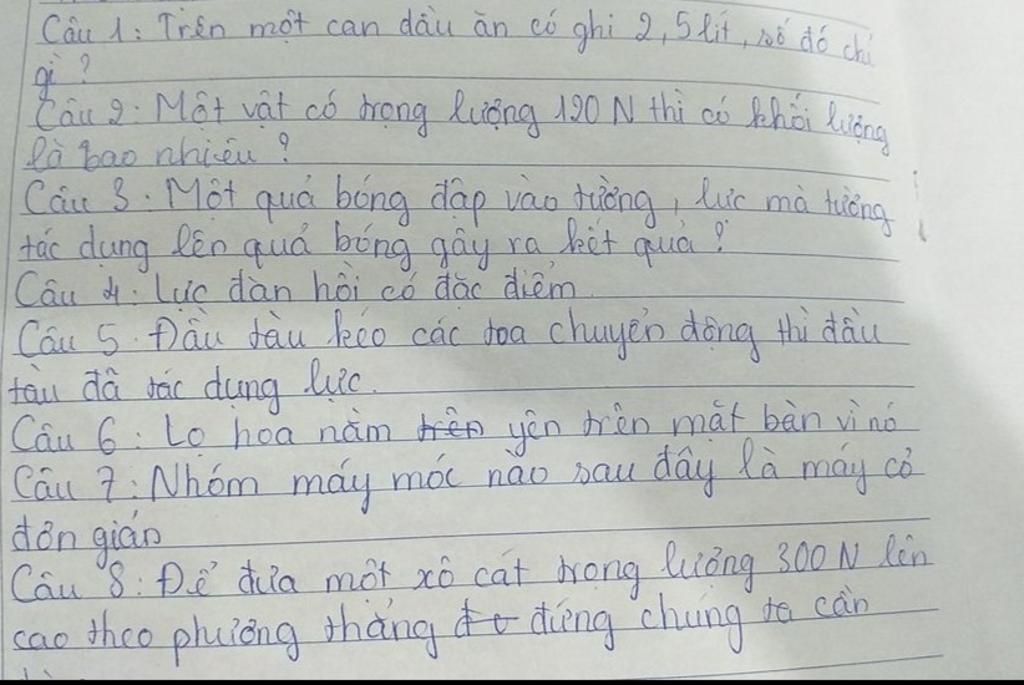 Câu 1: Trên một can dầu ăn có ghi 2,5 lít, số đó chỉ
gì?
Câu 2: Một vật có trọng lượng 120 N thì có khối lượng
là bao nhiêu?
Câu 3: Một quả bóng đập vào tường, lực mà tường
tác dụng lên quả bóng gây ra kết quả?
Câu 4: Lực đàn hồi có đặc điểm
Câu 5: Đầu tàu kéo các toa chuyển động thì đầu
tàu đã tác dụng lực.
Câu 6: Lọ hoa nằm yên trên mặt bàn vì nó
Câu 7: Nhóm máy móc nào sau đây là máy cơ
đơn giản
Câu 8: Để đưa một xô cát trọng lượng 300 N lên
cao theo phương thẳng đứng chúng ta cần